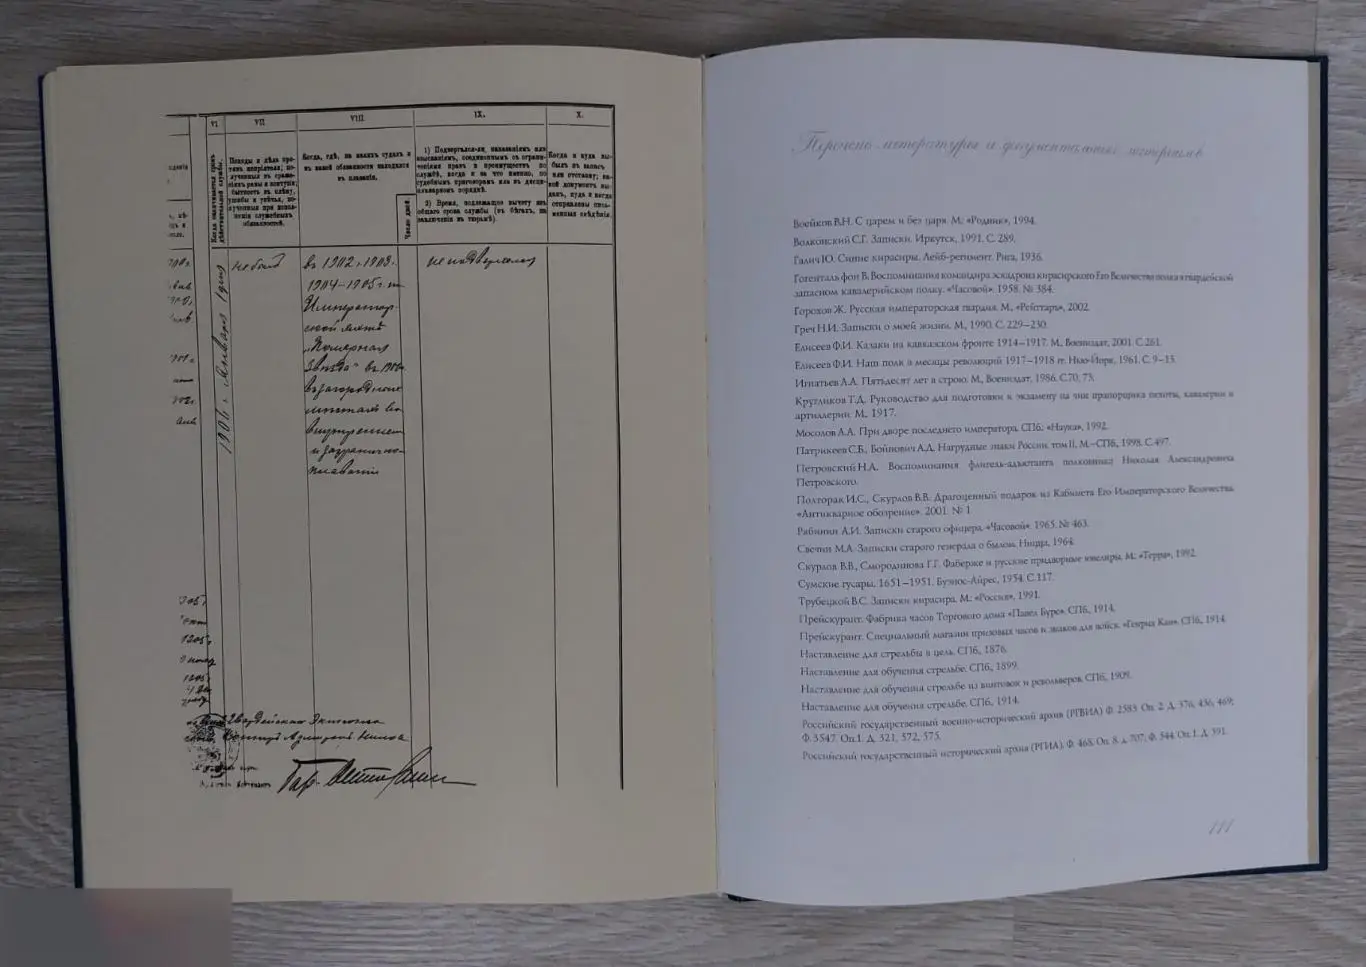 VI
VII
VIII.
IX.
X.
Когда оканчивается срокъ дѣйствительной службы.
Походы и дѣла про-
тивъ непріятеля; по-
лученныя въ сраже-
ніяхъ раны и контузіи;
бытность въ плѣну,
ушибы и увѣчья, по-
лученныя при испол-
неніи служебныхъ
обязанностей.
Когда, гдѣ, на какихъ судахъ и
въ какой обязанности находился
въ плаваніи.
Число дней.
1) Подвергался-ли, наказаніямъ или
взысканіямъ, соединеннымъ съ ограни-
ченіями правъ и преимуществъ по
службѣ, когда и за что именно, по
судебнымъ приговорамъ или въ дисци-
плинарномъ порядкѣ.
2) Время, подлежащее вычету изъ
общаго срока службы (въ бѣгахъ, въ
заключеніи въ тюрьмѣ).
Когда и куда вы-
былъ въ запасъ
или отставку; ка-
кой документъ вы-
данъ, куда и когда
отправлены пись-
менныя свѣдѣнія.
1906 г. Января 1 дня
не былъ
въ 1902 и 1903 г.
1904–1905 г. на
Император-
ской яхтѣ
„Полярная
Звѣзда" въ 1906 г.
въ загородномъ
плаваніи во
внутреннемъ
и загранично-
плаваніи
не подвергался
1905 г.
Гвардейскаго Экипажа
Перечень литературы и документальных материалов
Воейков В.Н. С царем и без царя. М.: «Родник», 1994.
Волконский С.Г. Записки. Иркутск, 1991. С. 289.
Галич Ю. Синие кирасиры. Лейб-регимент. Рига, 1936.
Гогенталь фон В. Воспоминания командира эскадрона кирасирского Его Величества полка в гвардейской
запасном кавалерийском полку. «Часовой». 1958. № 384.
Горохов Ж. Русская императорская гвардия. М., «Рейттаръ», 2002.
Греч Н.И. Записки о моей жизни. М., 1990. С. 229–230.
Елисеев Ф.И. Казаки на кавказском фронте 1914–1917. М., Воениздат, 2001. С. 261.
Елисеев Ф.И. Наш полк в месяцы революций 1917–1918 гг. Нью-Йорк, 1961. С. 9–13.
Игнатьев А.А. Пятьдесят лет в строю. М., Воениздат, 1986. С.70, 73.
Кругликов Т.Д. Руководство для подготовки к экзамену на чин прапорщика пехоты, кавалерии и
артиллерии. М., 1917.
Мосолов А.А. При дворе последнего императора. СПб.: «Наука», 1992.
Патрикеев С.Б., Бойнович А.Д. Нагрудные знаки России. том II, М.–СПб., 1998. С. 497.
Петровский Н.А. Воспоминания флигель-адъютанта полковника Николая Александровича
Петровского.
Полторак И.С., Скурлов В.В. Драгоценный подарок из Кабинета Его Императорского Величества.
«Антикварное обозрение». 2001. № 1
Рябинин А.И. Записки старого офицера. «Часовой». 1965. № 463.
Свечин М.А. Записки старого генерала о былом. Ницца, 1964.
Скурлов В.В., Смородинова Г.Г. Фаберже и русские придворные ювелиры. М.: «Терра», 1992.
Сумские гусары, 1651–1951. Буэнос-Айрес, 1954. С. 117.
Трубецкой В.С. Записки кирасира. М.: «Россия», 1991.
Прейскурант. Фабрика часов Торгового дома «Павел Буре». СПб., 1914.
Прейскурант. Специальный магазин призовых часов и знаков для войск. «Генрих Кан». СПб., 1914.
Наставление для стрельбы в цель. СПб., 1876.
Наставление для обучения стрельбе. СПб., 1899.
Наставление для обучения стрельбе из винтовок и револьверов. СПб., 1909.
Наставление для обучения стрельбе. СПб., 1914.
Российский государственный военно-исторический архив (РГВИА) Ф. 2583. Оп. 2. Д. 376, 456, 469;
Ф. 3547. Оп.1. Д. 321, 572, 575.
Российский государственный исторический архив (РГИА). Ф. 468. Оп. 8. д. 707; Ф. 544. Оп. 1. Д. 591.
111